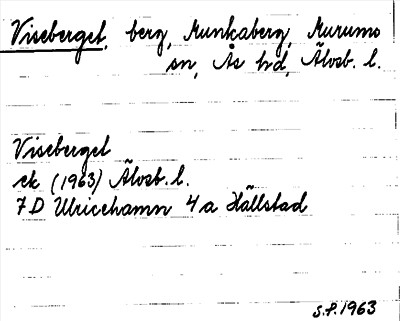 Viseberget, berg, Munkaberg, Murums
sn, Ås hd, Älvsb. l.
Viseberget
ek (1963) Älvsb. l.
7D Ulricehamn 4a Hällstad
S.P. 1963